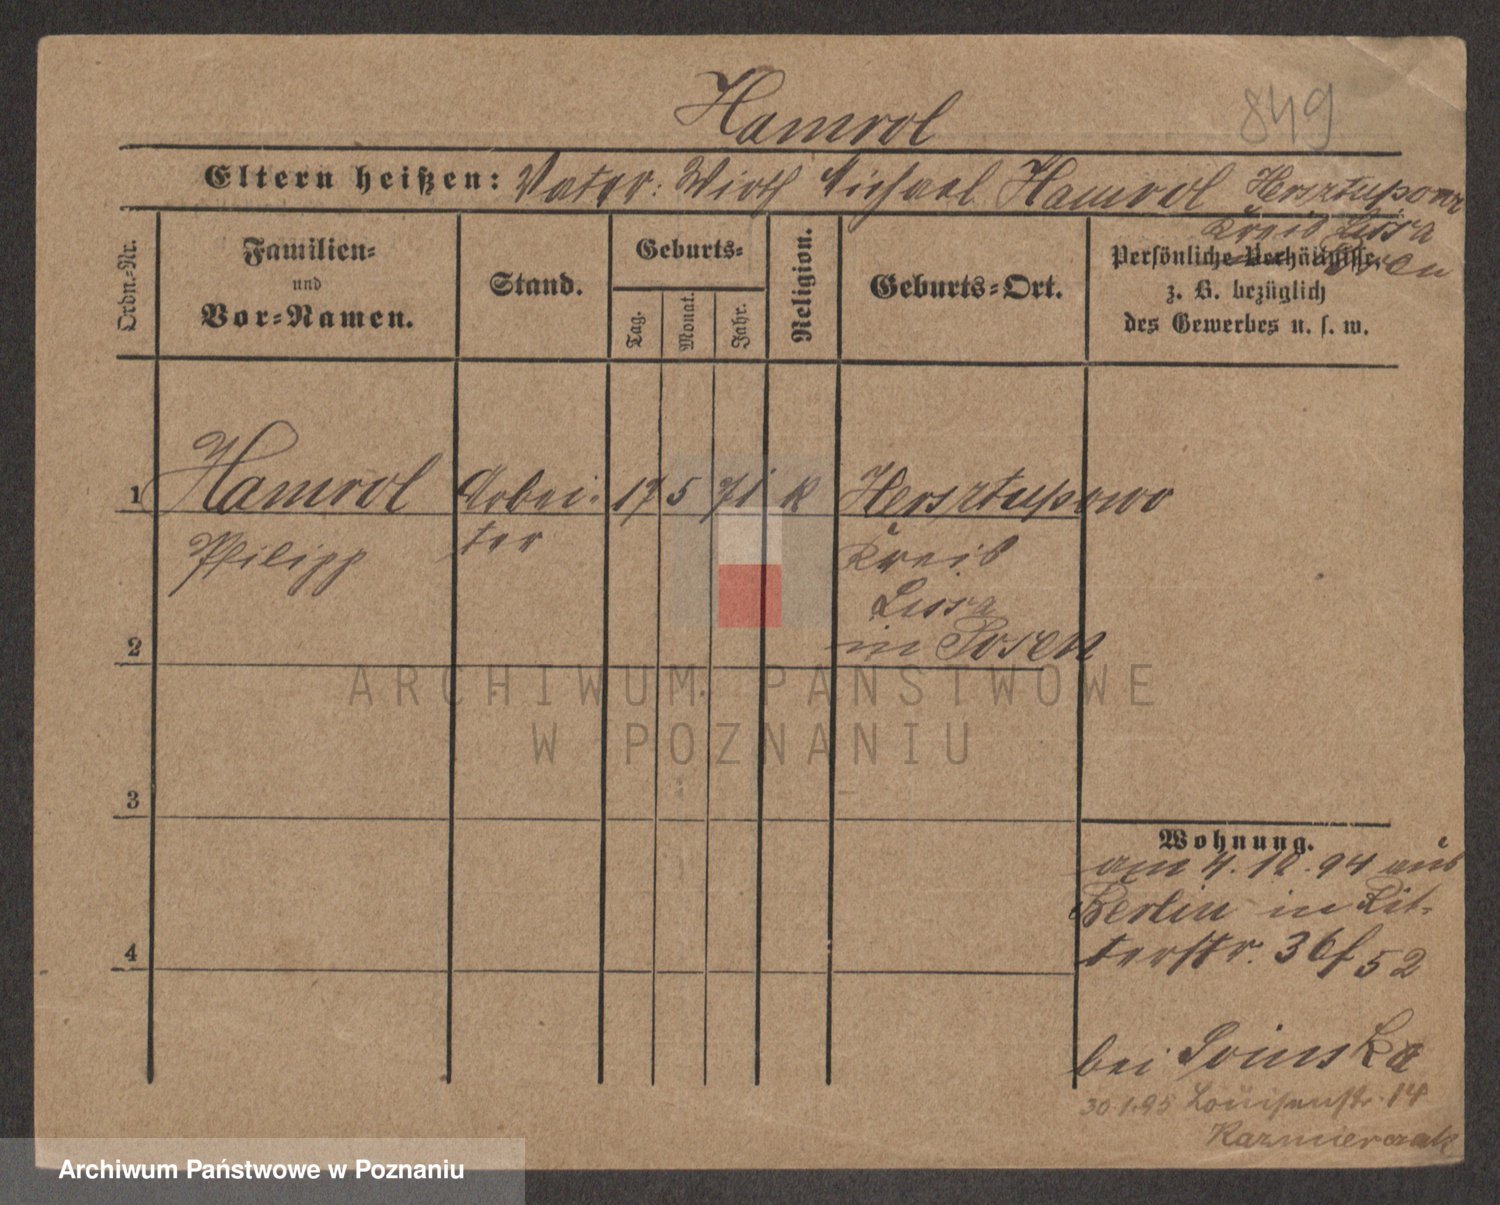 Hamrol
849
Eltern heißen: Vater: Wirth Michael Hamrol Hersztupowo
Kreis Lissa
Posen
Ordn.-Nr.
Familien-
und
Vor-Namen.
Stand.
Geburts-
Tag.
Monat.
Jahr.
Religion.
Geburts-Ort.
Persönliche Verhältnisse,
z. B. bezüglich
des Gewerbes u. s. w.
1 Hamrol Arbei- 17 5 71 K Hersztupowo
Philipp ter Kreis
Lissa
2 in Posen
ARCHIWUM PAŃSTWOWE
W POZNANIU
3
Wohnung.
am 4.10.94 aus
Berlin in Rit-
4 terstr. 36 f 52
bei Soinska
30.1.95 Louisenstr. 14
Kazmierczak
Archiwum Państwowe w Poznaniu